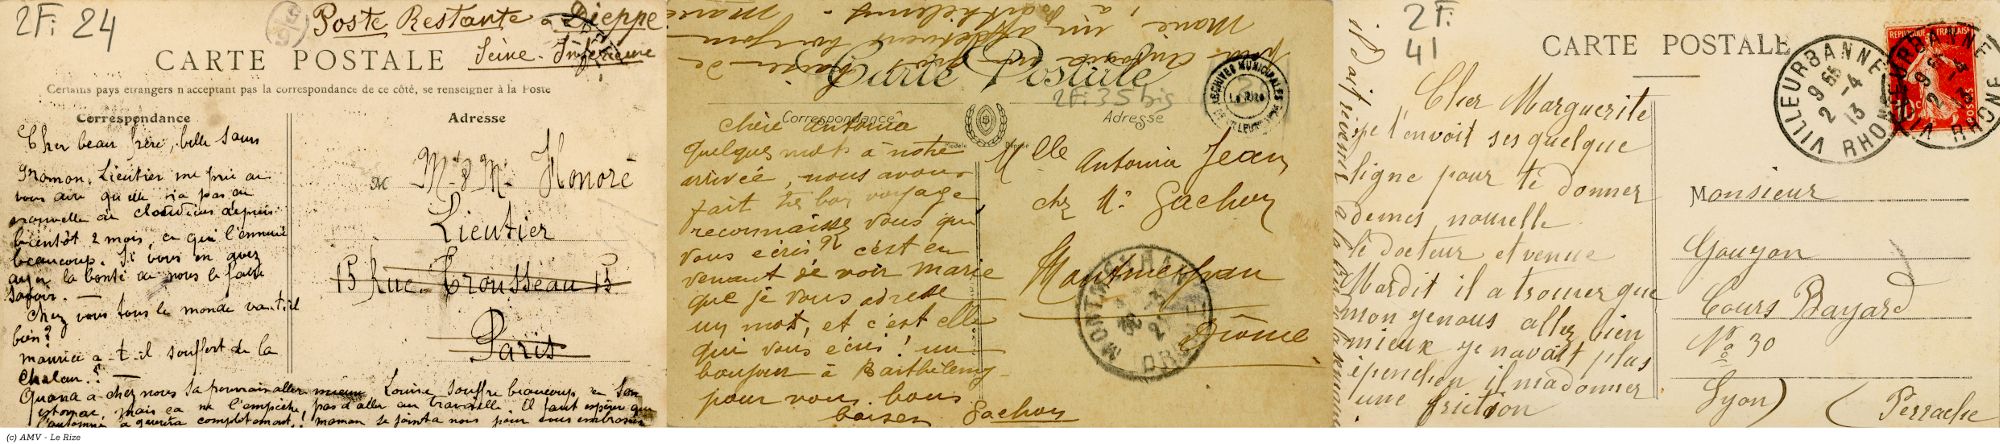 2Fi 24
Poste Restante à Dieppe
Seine-Inférieure
CARTE POSTALE
Certains pays étrangers n'acceptant pas la correspondance de ce côté, se renseigner à la Poste
Correspondance
Adresse
Cher beau frère, belle sœur
Lieutier me prie de
vous dire qu'elle n'a pas eu
nouvelle de depuis
bientôt 2 mois, ce qui l'ennuie
beaucoup. Si vous en avez
ayez la bonté de nous le faire
savoir.
Chez vous tous le monde va-t-il
bien?
Maurice a-t-il souffert de la
Chaleur?
Quand à chez nous sa pourrait aller mieux Louise souffre beaucoup de son
estomac, mais ça ne l'empêche pas d'aller au travaille. Il faut espérer que
l'automne la guérira complètement, maman se joint a nous pour vous embrasser
M
Mr & Me Honoré
Lieutier
15 Rue Trousseau 15
Paris
Carte Postale
2Fi 35 bis
Correspondance
Adresse
Modèle Déposé
ARCHIVES MUNICIPALES
LE RIZE
Chère Antonia
quelques mots à notre
arrivée, nous avons
fait très bon voyage
reconnaissez vous qui
vous écris? c'est en
venant de voir Marie
que je vous adresse
un mot, et c'est elle
qui vous écris! un
bonjour à Barthélemy
pour vous bons
baisers Gachon
Mlle Antonia Jean
chez Mr Gachon
Montmeyran
Drôme
MONTMEYRAN
DROME
2Fi
41
CARTE POSTALE
Cher Marguerite
je t'envoit ses quelque
ligne pour te donner
demes nouvelle
le docteur et venue
Mardit il a trouver que
mon genous allez bien
mieux je navait plus
il madonner
une friction
VILLEURBANNE
RHONE
REPUBLIQUE FRANÇAISE
10c
POSTES
Monsieur
Gouyon
Cours Bayard
No 30
Lyon (Perrache
(c) AMV - Le Rize